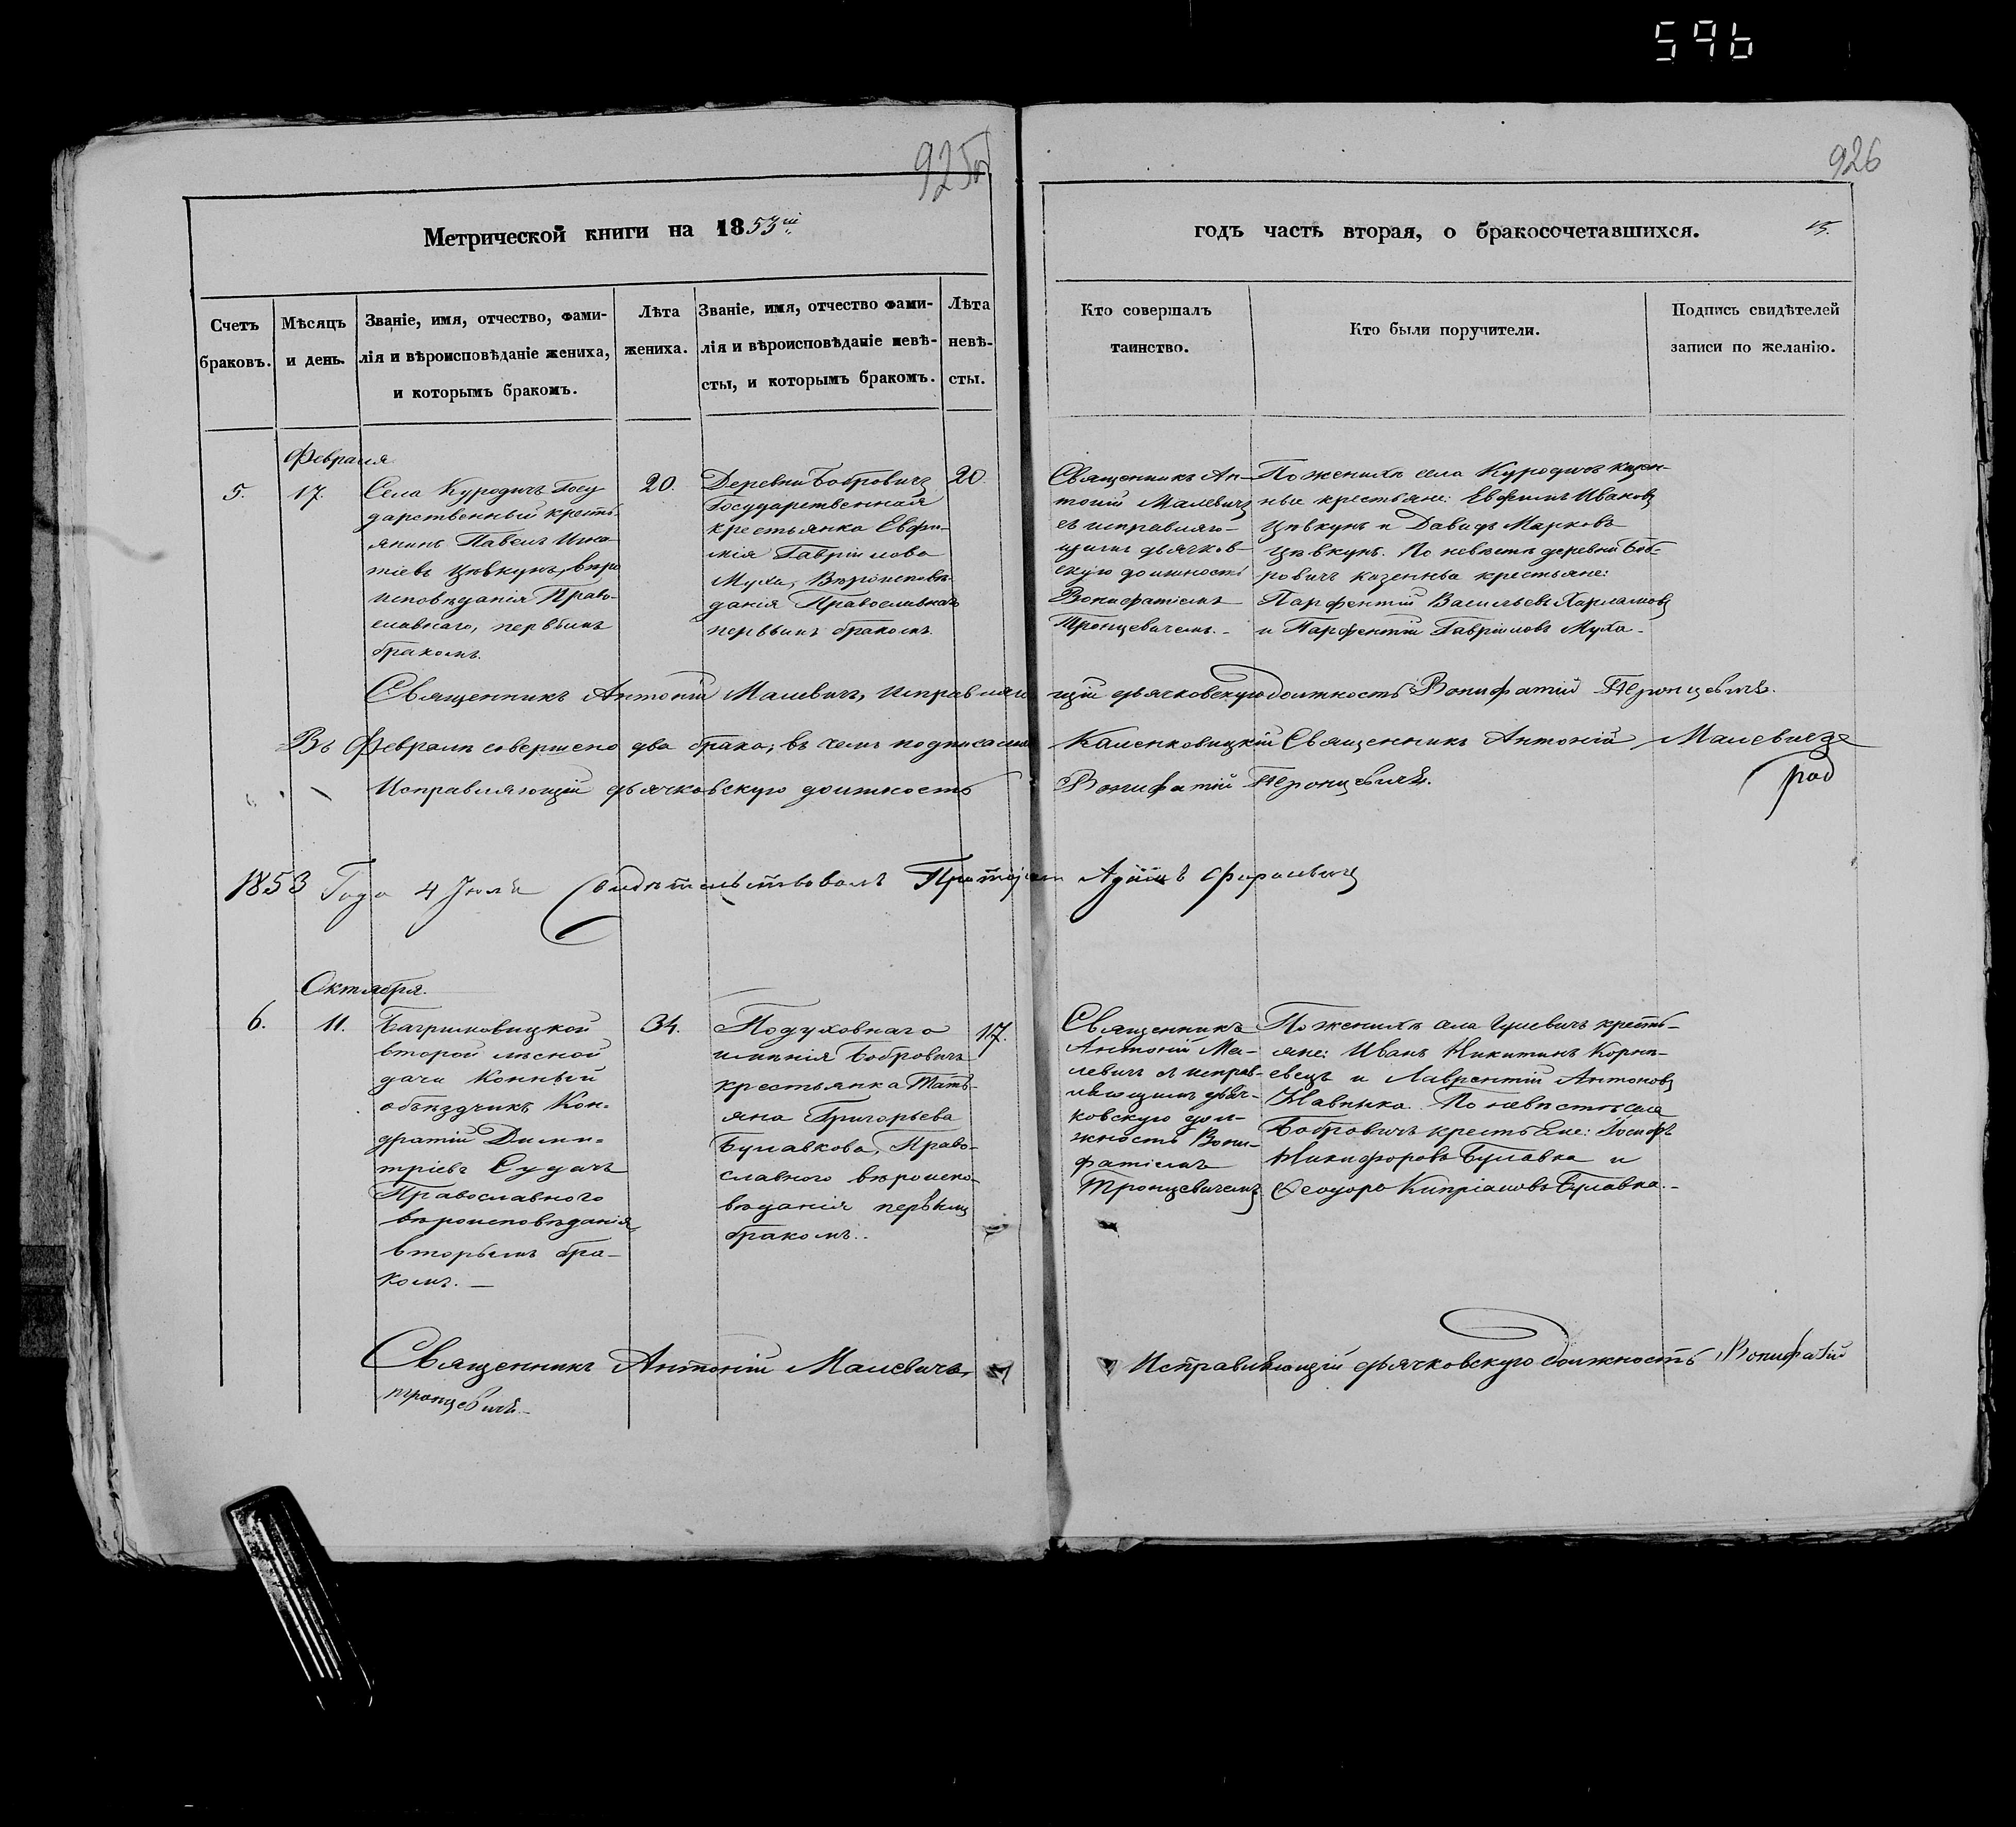 596
925об
926
Метрической книги на 1853й
годъ часть вторая, о бракосочетавшихся.
15.
Счетъ
браковъ.
Мѣсяцъ
и день.
Званіе, имя, отчество, фами-
лія и вѣроисповѣданіе жениха,
и которымъ бракомъ.
Лѣта
жениха.
Званіе, имя, отчество фами-
лія и вѣроисповѣданіе невѣ-
сты, и которымъ бракомъ.
Лѣта
невѣ-
сты.
Кто совершалъ
таинство.
Кто были поручители.
Подпись свидѣтелей
записи по желанію.
Февраля
5.
17.
Села Куродичъ Госу
дарственный кресть-
янинъ Павелъ Игна-
тіевъ Цѣвкунъ, вѣро
исповѣданія Право-
славнаго, первымъ
бракомъ.
20.
Деревни Бобровичъ
Государственная
крестьянка Евфи-
мія Гавріилова
Муха, Вѣроисповѣ-
данія Православнаго
первымъ бракомъ.
20.
Священникъ Ан-
тоній Малевичъ
съ исправляю-
щимъ дьячков-
скую должность
Вонифатіемъ
Тронцевичемъ.-
По женихѣ села Куродичъ казен-
ные крестьяне: Евфимъ Ивановъ
Цѣвкунъ и Давидъ Марковъ
Цѣвкунъ. По невѣстѣ деревни Боб-
ровичъ казенные крестьяне:
Парфентій Васильевъ Харламовъ
и Парфентій Гавріиловъ Муха.-
Священникъ Антоній Малевичъ, Исправляющій дьячковскую должность Вонифатій Тронцевичъ.
Въ Февралѣ совершено два брака, въ чемъ подписались Каленковицкій Священникъ Антоній Малевичъ
Исправляющій дьячковскую должность Вонифатій Тронцевичъ.
1853 Года 4 Іюля Свидѣтельствовалъ
Октября.
6.
11.
второй лѣсной
дачи Конный
объѣздчикъ Кон-
дратій Дими-
тріевъ Судачъ
Православнаго
вѣроисповѣданія,
вторымъ бра-
комъ.—
34.
Подуховнаго
имѣнія Бобровичъ
крестьянка Тать-
яна Григорьева
Булавкова, Право-
славнаго вѣроиспо-
вѣданія первымъ
бракомъ..
17.
Священникъ
Антоній Ма-
левичъ съ исправ-
ляющимъ дьяч-
ковскую дол-
жность Вони-
фатіемъ
Тронцевичемъ
По женихѣ села Гулевичъ кресть-
яне: Иванъ Никитинъ Корнѣ-
евецъ и Лаврентій Антоновъ
По невѣстѣ села
Бобровичъ крестьяне: Іосифъ
Никифоровъ Булавка и
Ѳеодоръ Кипріановъ Булавка.-
Священникъ Антоній Малевичъ, Исправляющій дьячковскую должность Вонифатій
Тронцевичъ.-